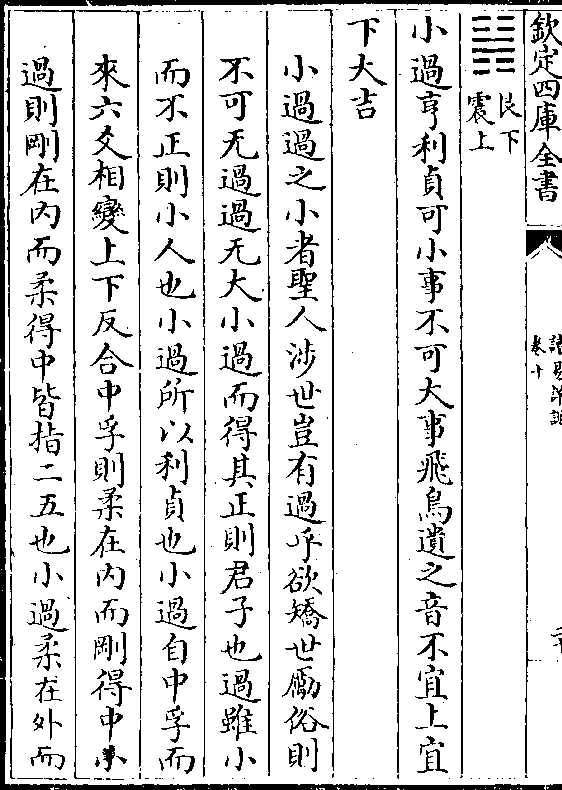 欽定四庫全書
卷十
艮下
震上
小過亨利貞可小事不可大事飛鳥遺之音不宜上宜
下大吉
小過過之小者聖人涉世豈有過乎欲矯世勵俗則
不可无過過无大小過而得其正則君子也過雖小
而不正則小人也小過所以利貞也小過自中孚而
來六爻相變上下反合中孚則柔在内而剛得中小
過則剛在内而柔得中皆指二五也小過柔在外而